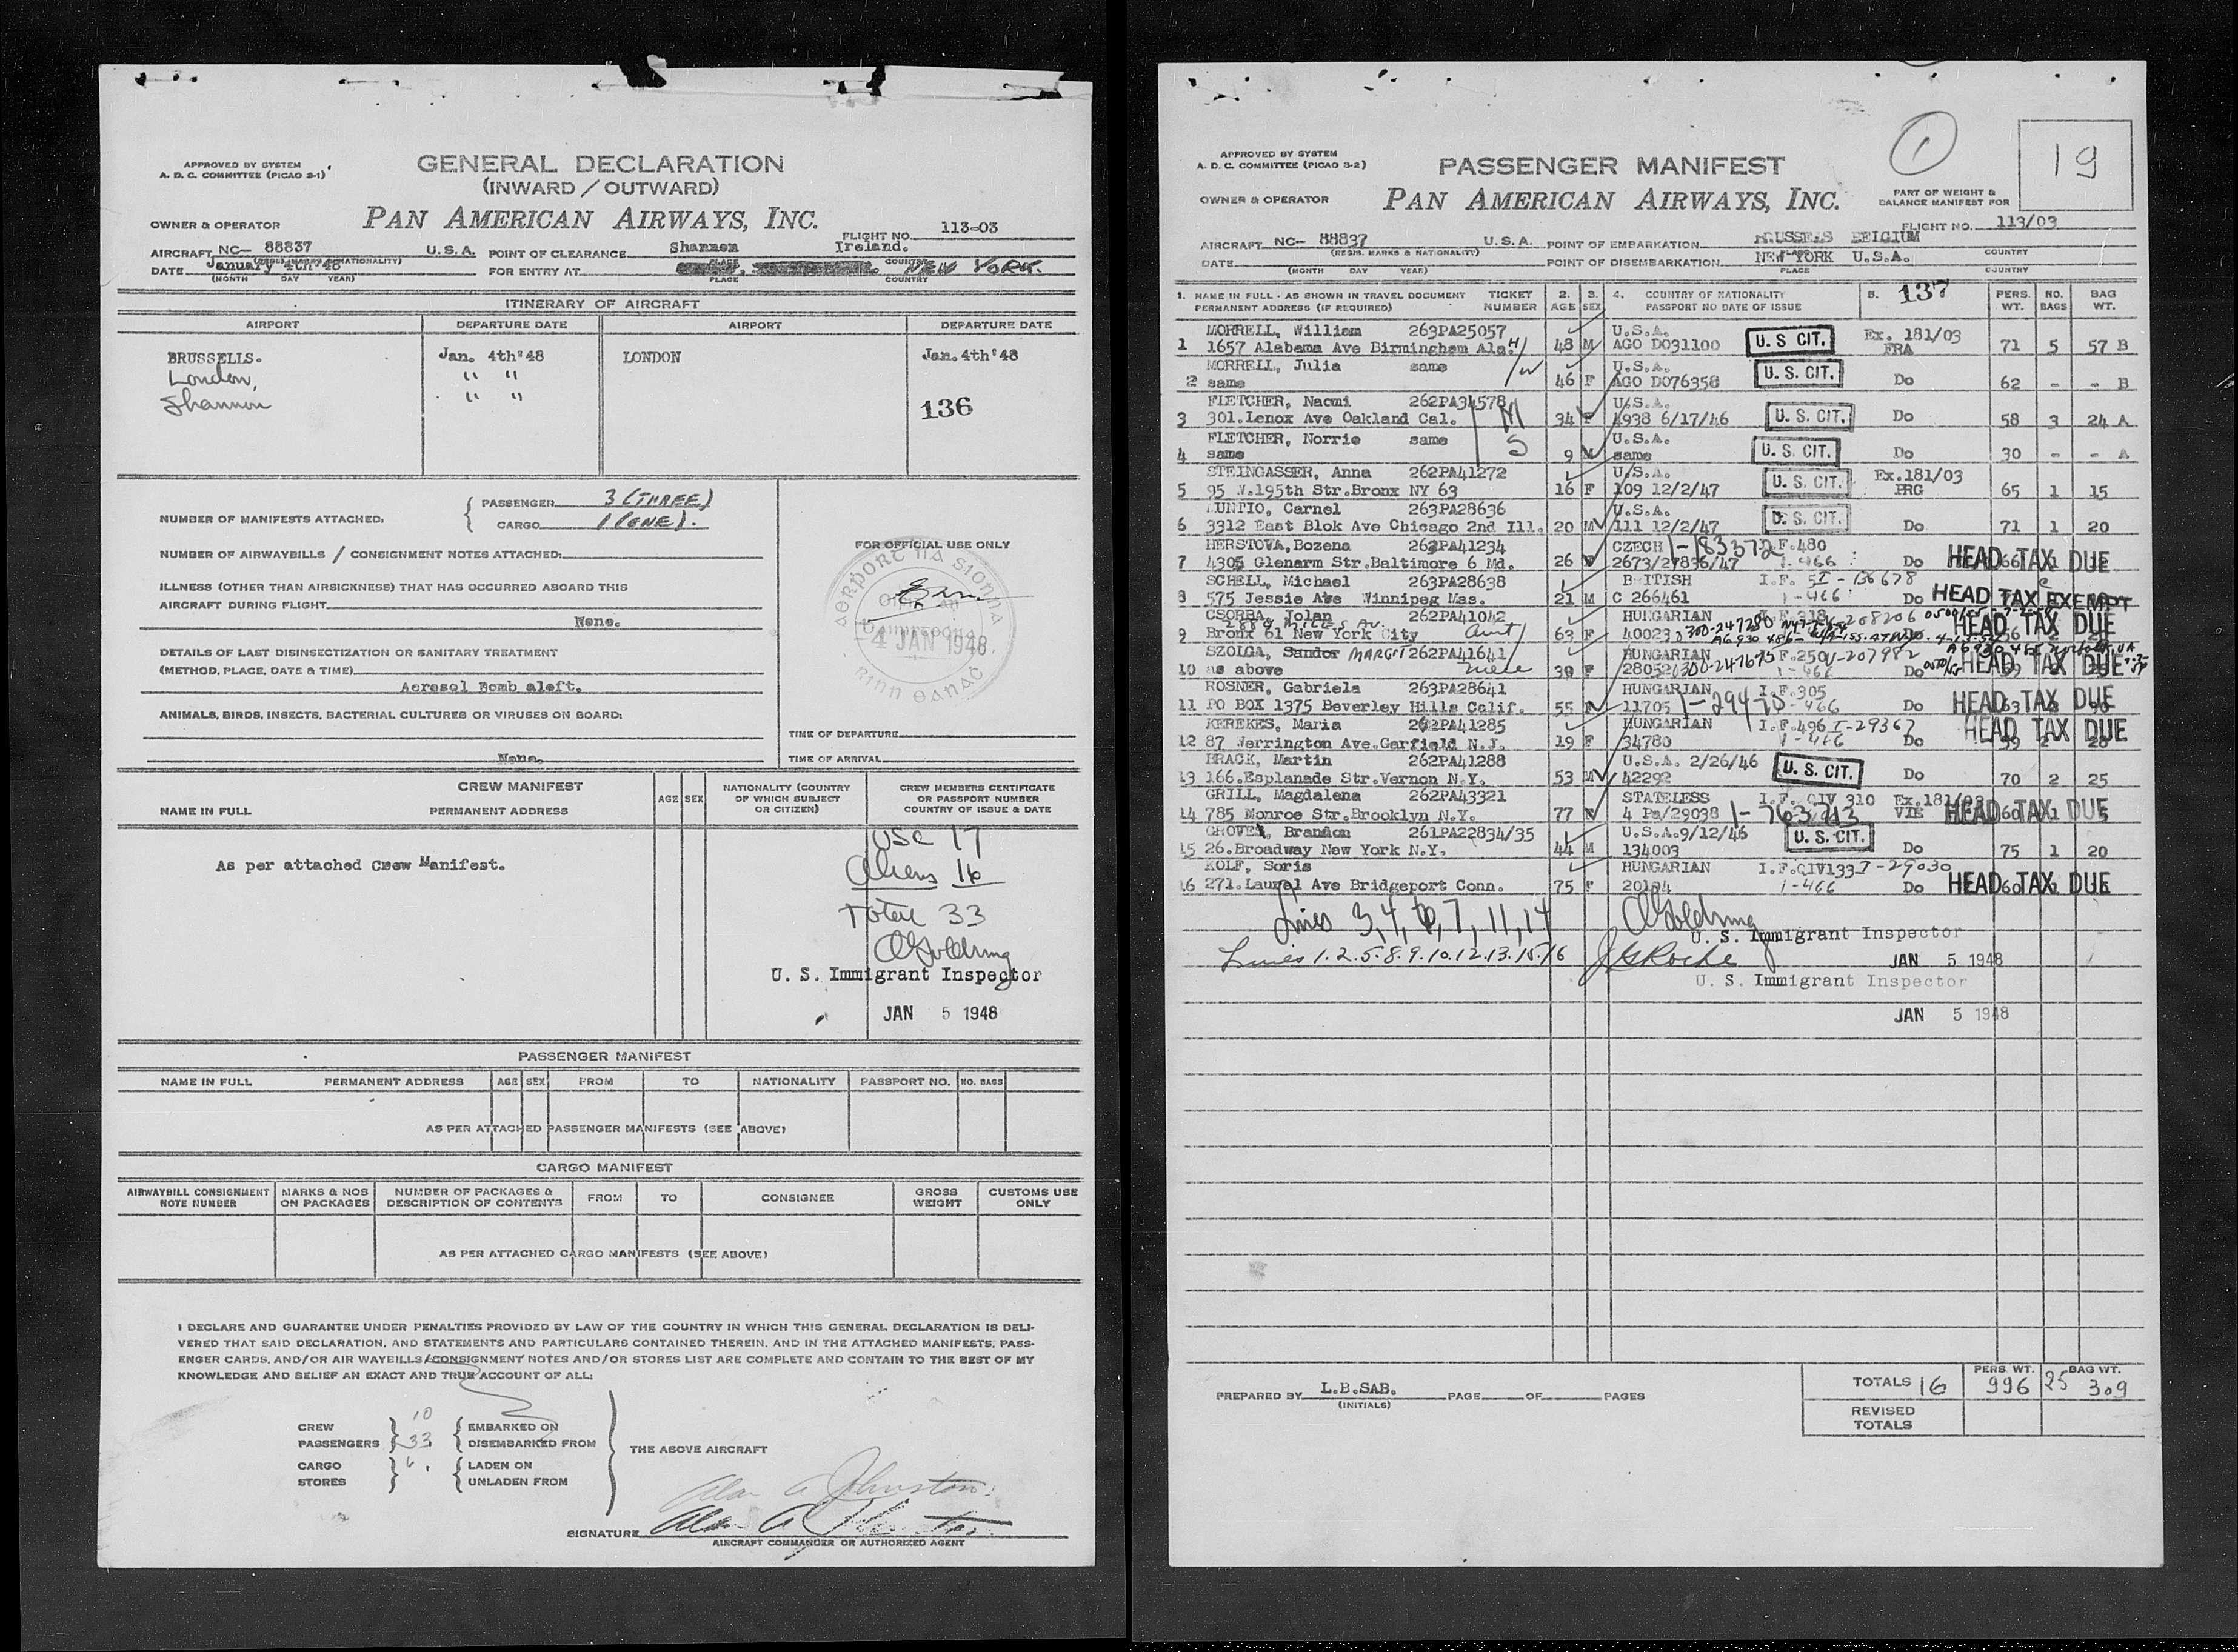 APPROVED BY SYSTEM
A. D. C. COMMITTEE (PICAO S-1)
GENERAL DECLARATION
(INWARD / OUTWARD)
OWNER & OPERATOR
PAN AMERICAN AIRWAYS, INC.
FLIGHT NO. 113-03
AIRCRAFT NC- 88837 U.S.A. POINT OF CLEARANCE Shannon Ireland.
(REGIS. MARKS & NATIONALITY) PLACE COUNTRY
DATE January 4th'48 FOR ENTRY AT NEW YORK.
(MONTH DAY YEAR) PLACE COUNTRY
ITINERARY OF AIRCRAFT
AIRPORT DEPARTURE DATE AIRPORT DEPARTURE DATE
BRUSSELLS. Jan. 4th'48 LONDON Jan.4th'48
London, " "
Shannon " " 136
NUMBER OF MANIFESTS ATTACHED: PASSENGER 3 (THREE)
CARGO 1 (ONE).
NUMBER OF AIRWAYBILLS / CONSIGNMENT NOTES ATTACHED:
FOR OFFICIAL USE ONLY
ILLNESS (OTHER THAN AIRSICKNESS) THAT HAS OCCURRED ABOARD THIS
AIRCRAFT DURING FLIGHT
None.
4 JAN 1948.
DETAILS OF LAST DISINSECTIZATION OR SANITARY TREATMENT
(METHOD, PLACE, DATE & TIME)
Aerosol Bomb aloft.
ANIMALS, BIRDS, INSECTS, BACTERIAL CULTURES OR VIRUSES ON BOARD:
None.
TIME OF DEPARTURE
TIME OF ARRIVAL
CREW MANIFEST
NAME IN FULL PERMANENT ADDRESS AGE SEX NATIONALITY (COUNTRY OF WHICH SUBJECT OR CITIZEN) CREW MEMBERS CERTIFICATE OR PASSPORT NUMBER COUNTRY OF ISSUE & DATE
As per attached Crew Manifest.
USC 17
Aliens 16
Total 33
U. S. Immigrant Inspector
JAN 5 1948
PASSENGER MANIFEST
NAME IN FULL PERMANENT ADDRESS AGE SEX FROM TO NATIONALITY PASSPORT NO. NO. BAGS
AS PER ATTACHED PASSENGER MANIFESTS (SEE ABOVE)
CARGO MANIFEST
AIRWAYBILL CONSIGNMENT NOTE NUMBER MARKS & NOS ON PACKAGES NUMBER OF PACKAGES & DESCRIPTION OF CONTENTS FROM TO CONSIGNEE GROSS WEIGHT CUSTOMS USE ONLY
AS PER ATTACHED CARGO MANIFESTS (SEE ABOVE)
I DECLARE AND GUARANTEE UNDER PENALTIES PROVIDED BY LAW OF THE COUNTRY IN WHICH THIS GENERAL DECLARATION IS DELI-
VERED THAT SAID DECLARATION, AND STATEMENTS AND PARTICULARS CONTAINED THEREIN, AND IN THE ATTACHED MANIFESTS, PASS-
ENGER CARDS, AND/OR AIR WAYBILLS/CONSIGNMENT NOTES AND/OR STORES LIST ARE COMPLETE AND CONTAIN TO THE BEST OF MY
KNOWLEDGE AND BELIEF AN EXACT AND TRUE ACCOUNT OF ALL:
CREW 10 EMBARKED ON
PASSENGERS 33 DISEMBARKED FROM THE ABOVE AIRCRAFT
CARGO LADEN ON
STORES UNLADEN FROM
Alan A Johnston
SIGNATURE Alan A Johnston
AIRCRAFT COMMANDER OR AUTHORIZED AGENT
APPROVED BY SYSTEM
A. D. C. COMMITTEE (PICAO S-2)
PASSENGER MANIFEST
1
19
OWNER & OPERATOR
PAN AMERICAN AIRWAYS, INC.
PART OF WEIGHT & BALANCE MANIFEST FOR
FLIGHT NO. 113/03
AIRCRAFT NC- 88837 U.S.A. POINT OF EMBARKATION BRUSSELS BELGIUM
(REGIS. MARKS & NATIONALITY) COUNTRY
DATE POINT OF DISEMBARKATION NEW YORK U.S.A.
(MONTH DAY YEAR) PLACE COUNTRY
1. NAME IN FULL - AS SHOWN IN TRAVEL DOCUMENT TICKET 2. 3. 4. COUNTRY OF NATIONALITY 5. 137 PERS. NO. BAG
PERMANENT ADDRESS (IF REQUIRED) NUMBER AGE SEX PASSPORT NO DATE OF ISSUE WT. BAGS WT.
MORRELL, William 263PA25057 U.S.A. U. S CIT. Ex. 181/03
1 1657 Alabama Ave Birmingham Ala. H/ 48 M AGO D031100 FRA 71 5 57 B
MORRELL, Julia same U.S.A. U. S. CIT.
2 same /W 46 F AGO D076358 Do 62 - - B
FLETCHER, Naomi 262PA34578 U.S.A.
3 301.Lenox Ave Oakland Cal. M 34 F 4938 6/17/46 U. S. CIT. Do 58 3 24 A
FLETCHER, Norrie same S U.S.A.
4 same 9 M same U. S. CIT. Do 30 - - A
STEINGASSER, Anna 262PA41272 U.S.A. Ex.181/03
5 95 W.195th Str.Bronx NY 63 16 F 109 12/2/47 U. S. CIT. PRG 65 1 15
AUNTIO, Carnel 263PA28636 U.S.A.
6 3312 East Blok Ave Chicago 2nd Ill. 20 M 111 12/2/47 U. S. CIT. Do 71 1 20
HERSTOVA,Bozena 262PA41234 CZECH 1-183372 F.480
7 4305 Glenarm Str.Baltimore 6 Md. 26 F 2673/27836/47 1-466 Do HEAD TAX DUE
SCHELL, Michael 263PA28638 BRITISH I.F. 51-136678
8 575 Jessie Ave Winnipeg Mas. 21 M C 266461 1-466 Do HEAD TAX EXEMPT
CSORBA, Jolan 262PA41042 HUNGARIAN
9 Bronx 61 New York City Aunt/ 63 F 40023 HEAD TAX DUE
SZOLGA, Sandor MARGIT 262PA41641 HUNGARIAN
10 as above niece 39 F 28052 1-466 Do HEAD TAX DUE
ROSNER, Gabriela 263PA28641 HUNGARIAN I.F.305
11 PO BOX 1375 Beverley Hills Calif. 55 F 11705 1-466 Do HEAD TAX DUE
KEREKES, Maria 262PA41285 HUNGARIAN I.F.496 I-29367
12 87 Werrington Ave.Garfield N.J. 19 F 34780 1-466 Do HEAD TAX DUE
BRACK, Martin 262PA41288 U.S.A. 2/26/46
13 166.Esplanade Str.Vernon N.Y. 53 M 42292 U. S. CIT. Do 70 2 25
GRILL, Magdalena 262PA43321 STATELESS I.F. QIV 310 Ex.181/03
14 785 Monroe Str.Brooklyn N.Y. 77 F 4 Pa/29038 1-763713 VIE HEAD TAX DUE
GROVE, Brandon 261PA22834/35 U.S.A.9/12/46
15 26.Broadway New York N.Y. 44 M 134003 U. S. CIT. Do 75 1 20
KOLF, Soris HUNGARIAN I.F.QIV133 I-29030
16 271.Laurel Ave Bridgeport Conn. 75 F 20184 1-466 Do HEAD TAX DUE
Lines 3,4,6,7,11,14
U. S. Immigrant Inspector
Lines 1.2.5.8.9.10.12.13.15.16 JAN 5 1948
U. S. Immigrant Inspector
JAN 5 1948
PREPARED BY L.B.SAB. PAGE OF PAGES
(INITIALS)
PERS. WT. BAG WT.
TOTALS 16 996 25 309
REVISED TOTALS